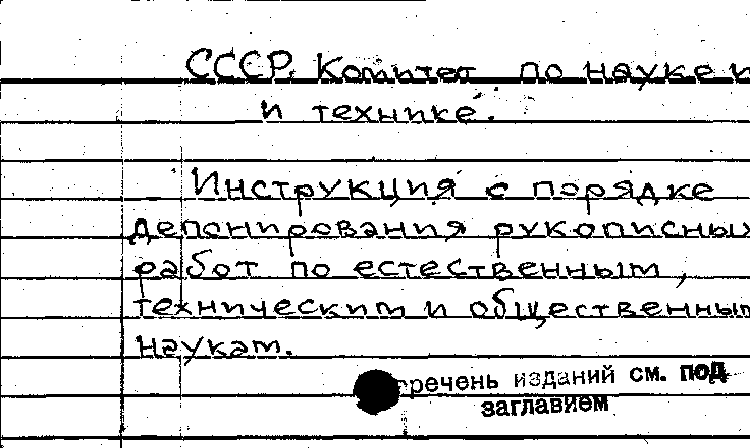 СССР. Комитет по науке и
и технике.
Инструкция о порядке
депонирования рукописных
работ по естественным,
техническим и общественным
наукам.
Перечень изданий см. под
заглавием